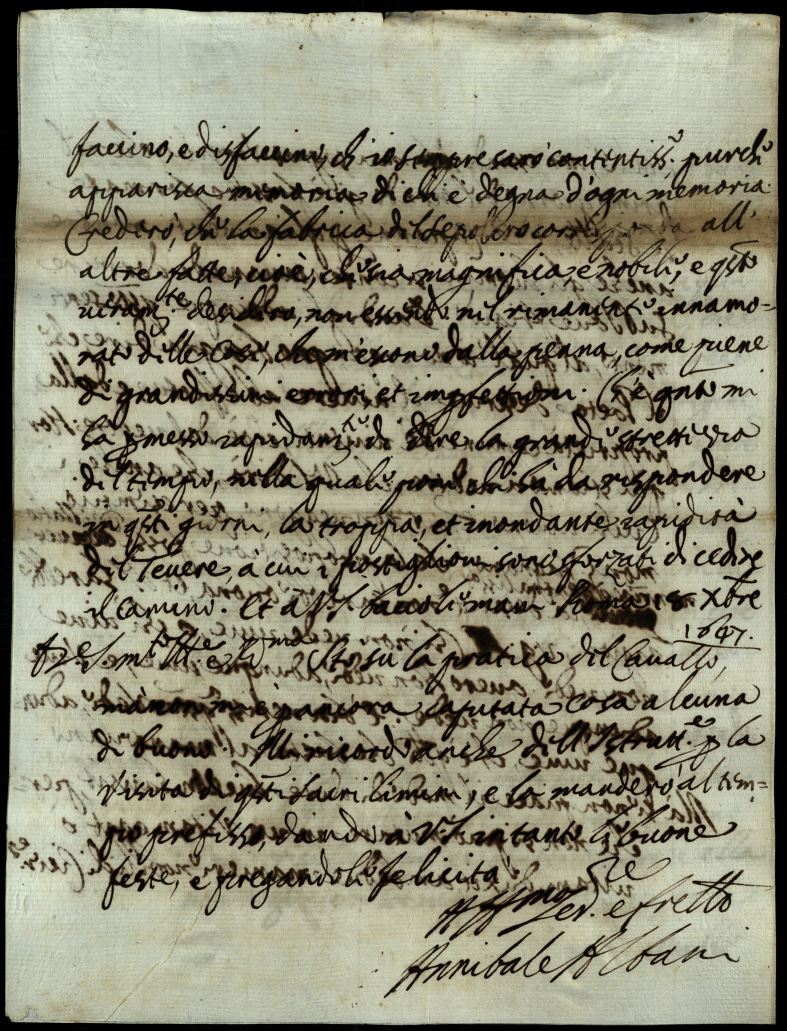 faccino, e disfaccino, ch' io sempre sarò contentiss.º purch'
apparisca memoria di chi è degna d'ogni memoria.
Crederò, che la fabrica del sepolcro all'
altre fatte, cioè, che sia magnifica, e nobile, e qsto
veram.te desidero, non essendo nel rimanente innamo=
rato delle cose, che m'escono dalla penna, come piene
di grandissimi errori, et impfettioni. E' qnto mi
ha pmesso rapidam.te di dire la grande strettezza
del tempo, nella quale pone chi hà da rispondere
in qsti giorni, la troppa, et inondante rapidità
del Tevere, à cui i postiglioni sono sforzati di cedere
il camino. Et à V.S. bacio le mani. Roma 8 Xbre
1647.
Stò sù la pratica del Cavallo,
mà non mi è p ancora caputata cosa alcuna
di buono. Mi ricordo anche dell' Istrutt.e p la
visita di qsti sacri limini, e la manderò al tem=
po prefisso, dando à V.S. intanto le buone
feste, e pregandole felicità.
Aff.mo Ser.re e fretto
Annibale Albani